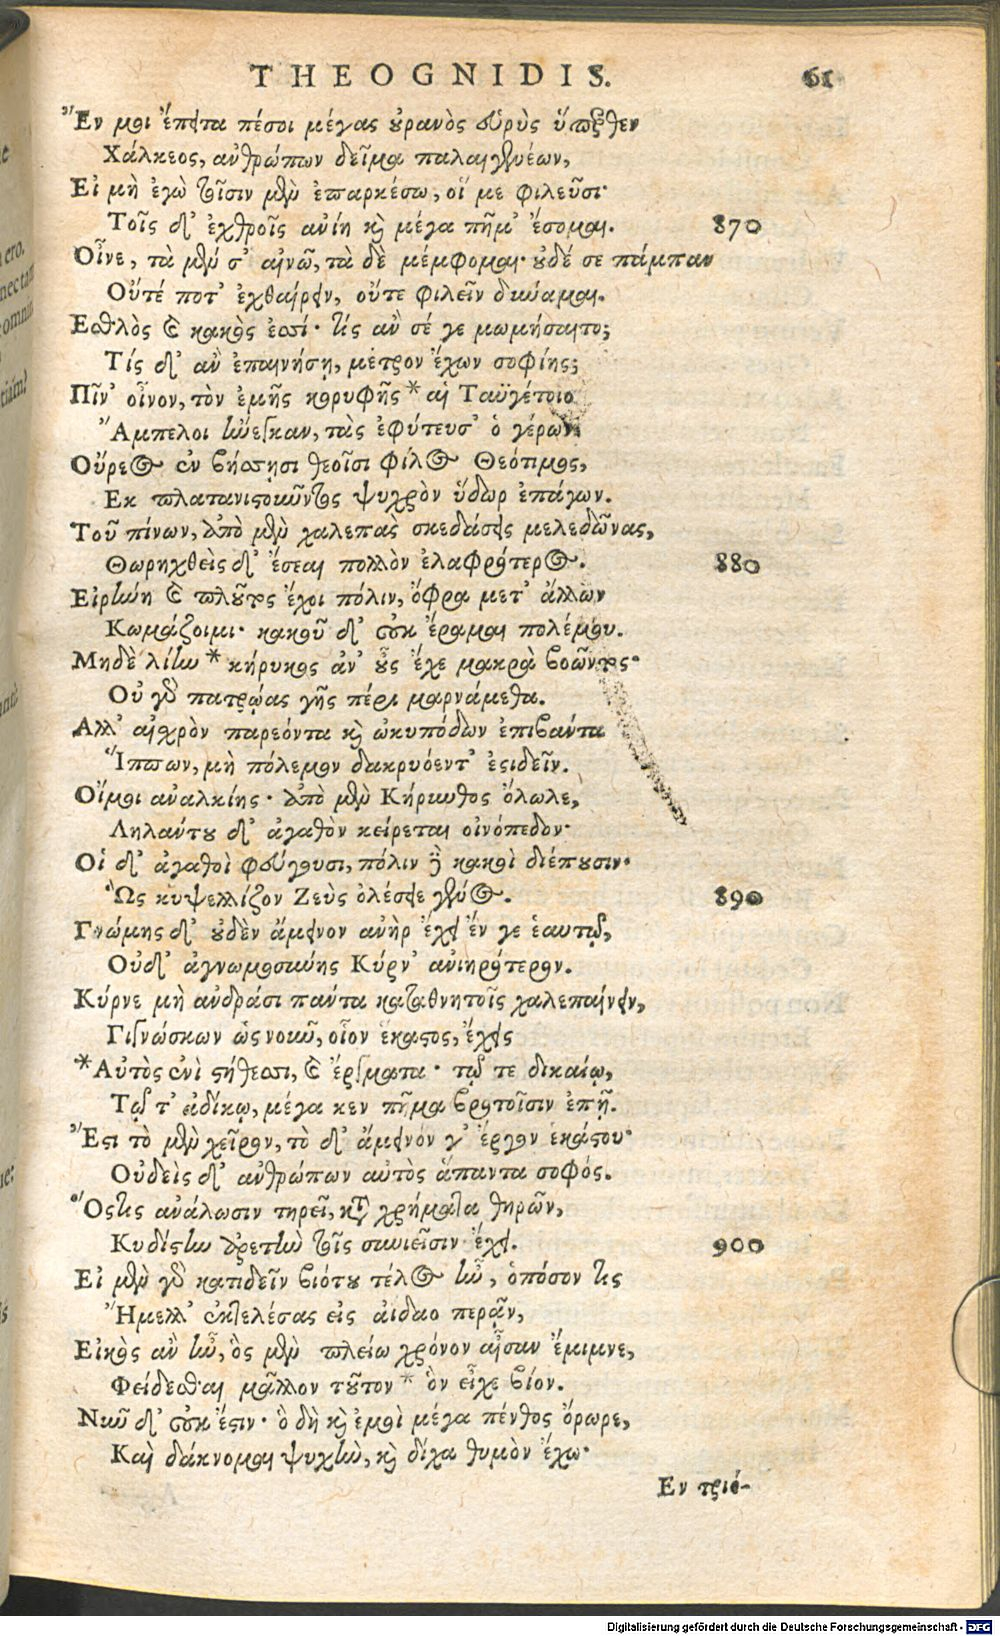 THEOGNIDIS. 61
Ἔν μοι ἔπειτα πέσοι μέγας οὐρανὸς εὐρὺς ὕπερθεν
Χάλκεος, ἀνθρώπων δεῖμα παλαιγενέων,
Εἰ μὴ ἐγὼ τοῖσιν μὲν ἐπαρκέσω, οἵ με φιλεῦσι·
Τοῖς δ' ἐχθροῖς ἀνίη καὶ μέγα πῆμ' ἔσομαι. 870
Οἶνε, τὰ μέν σ' αἰνῶ, τὰ δὲ μέμφομαι· οὐδέ σε πάμπαν
Οὔτέ ποτ' ἐχθαίρειν, οὔτε φιλεῖν δύναμαι.
Ἐσθλὸς καὶ κακὸς ἐσσί· τίς ἂν σέ γε μωμήσαιτο;
Τίς δ' ἂν ἐπαινήσῃ, μέτρον ἔχων σοφίης;
Πῖν' οἶνον, τὸν ἐμῆς κορυφῆς * αἱ Ταϋγέτοιο
Ἄμπελοι ἤνεγκαν, τὰς ἐφύτευσ' ὁ γέρων
Οὔρεος ἐν βήσσῃσι θεοῖσι φίλος Θεότιμος,
Ἐκ πλατανιστοῦντος ψυχρὸν ὕδωρ ἐπάγων.
Τοῦ πίνων, ἀπὸ μὲν χαλεπὰς σκεδάσεις μελεδῶνας,
Θωρηχθεὶς δ' ἔσεαι πολλὸν ἐλαφρότερος. 880
Εἰρήνη καὶ πλοῦτος ἔχοι πόλιν, ὄφρα μετ' ἄλλων
Κωμάζοιμι· κακοῦ δ' οὐκ ἔραμαι πολέμου.
Μηδὲ λίην * κήρυκος ἀν' οὖς ἔχε μακρὰ βοῶντος·
Οὐ γὰρ πατρῴας γῆς πέρι μαρνάμεθα.
Ἀλλ' αἰσχρὸν παρεόντα καὶ ὠκυπόδων ἐπιβάντα
Ἵππων, μὴ πόλεμον δακρυόεντ' ἐσιδεῖν.
Οἴμοι ἀναλκίης· ἀπὸ μὲν Κήρινθος ὄλωλε,
Ληλάντου δ' ἀγαθὸν κείρεται οἰνόπεδον·
Οἱ δ' ἀγαθοὶ φεύγουσι, πόλιν δὲ κακοὶ διέπουσιν·
Ὣς κυψελλίζον Ζεὺς ὀλέσειε γένος. 890
Γνώμης δ' οὐδὲν ἄμεινον ἀνὴρ ἔχει ἔν γε ἑαυτῷ,
Οὐδ' ἀγνωμοσύνης Κύρν' ἀνιηρότερον.
Κύρνε μὴ ἀνδράσι πάντα καταθνητοῖς χαλεπαίνειν,
Γιγνώσκων ὡς νοῦν, οἷον ἕκαστος, ἔχεις
*Αὐτὸς ἐνὶ στήθεσσι, καὶ ἔργματα· τῷ τε δικαίῳ,
Τῷ τ' ἀδίκῳ, μέγα κεν πῆμα βροτοῖσιν ἐπῇ.
Ἔστι τὸ μὲν χεῖρον, τὸ δ' ἄμεινόν γ' ἔργον ἑκάστου·
Οὐδεὶς δ' ἀνθρώπων αὐτὸς ἅπαντα σοφός.
Ὅστις ἀνάλωσιν τηρεῖ, κατὰ χρήματα θηρῶν,
Κυδίστην ἀρετὴν τοῖς συνιεῖσιν ἔχει. 900
Εἰ μὲν γὰρ κατιδεῖν βιότου τέλος ἦν, ὁπόσον τις
Ἤμελλ' ἐκτελέσας εἰς ἀίδαο περᾷν,
Εἰκὸς ἂν ἦν, ὃς μὲν πλείω χρόνον αἶσαν ἔμιμνε,
Φείδεσθαι μᾶλλον τοῦτον * ὃν εἶχε βίον.
Νῦν δ' οὐκ ἔστιν· ὃ δὴ καὶ ἐμοὶ μέγα πένθος ὄρωρε,
Καὶ δάκνομαι ψυχὴν, καὶ δίχα θυμὸν ἔχω·
Ἐν τριό-
Digitalisierung gefördert durch die Deutsche Forschungsgemeinschaft - DFG